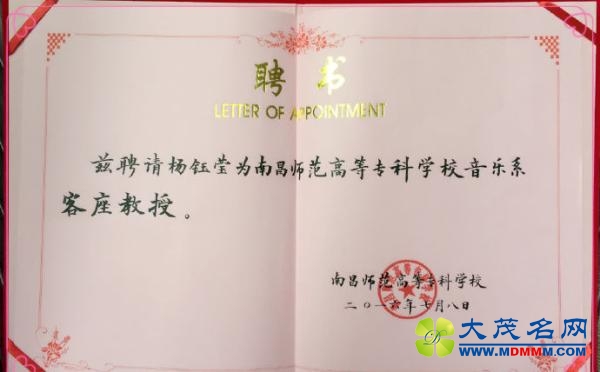 聘 书
LETTER OF APPOINTMENT
兹聘请杨钰莹为南昌师范高等专科学校音乐系
客座教授。
南昌师范高等专科学校
二〇一六年七月八日
大茂名网
WWW.MDMMM.COM